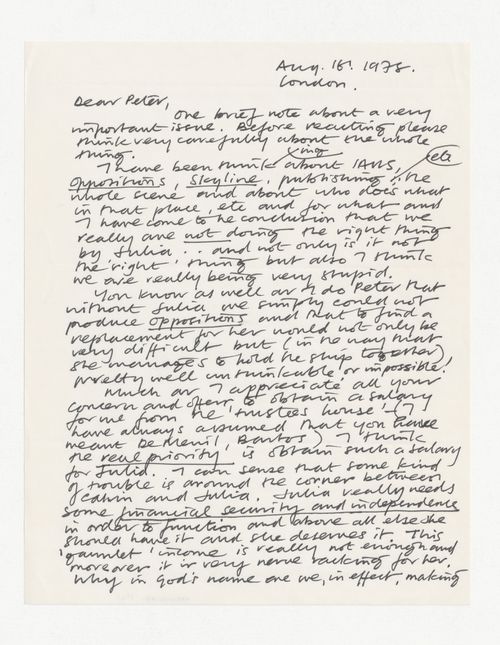 Aug. 16. 1978.
London.
Dear Peter,
One brief note about a very
important issue. Before reacting please
think very carefully about the whole
thing.
I have been thinking about IAUS,
Oppositions, Skyline, publishing, etc the
whole scene and about who does what
in that place, etc and for what and
I have come to the conclusion that we
really are not doing the right thing
by Julia ... and not only is it not
the 'right' thing but also I think
we are really being very stupid.
You know as well as I do Peter that
without Julia we simply could not
produce Oppositions and that to find a
replacement for her would not only be
very difficult but (in the way that
she manages to hold the ship together)
pretty well unthinkable or impossible!
Much as I appreciate all your
concern and offers to obtain a salary
for me from the 'trustees house' - (I
have always assumed that you have
meant De Menil, Bartos) I think
the real priority is obtain such a salary
for Julia. I can sense that some kind
of trouble is around the corner between
Colvin and Julia. Julia really needs
some financial security and independence
in order to function and above all else she
should have it and she deserves it. This
income is really not enough and
moreover it is very nerve racking for her.
Why in God's name are we, in effect, making